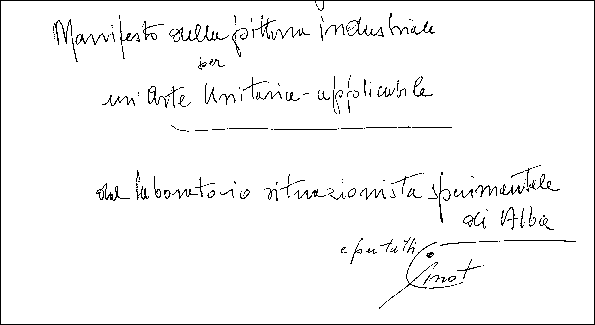 Manifesto della pittura industriale
per
un'arte Unitaria-applicabile
dal laboratorio situazionista sperimentale
di Alba
e per tutti
Pinot